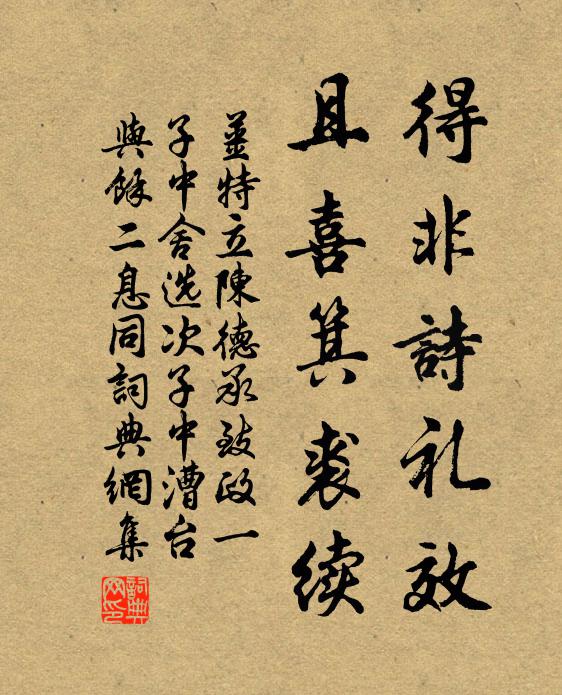 得非詩礼效
且喜箕裘续
薑特立陳德承致政一
子中舍选次子中漕台
與馀二息同詞典網集
詞典网印